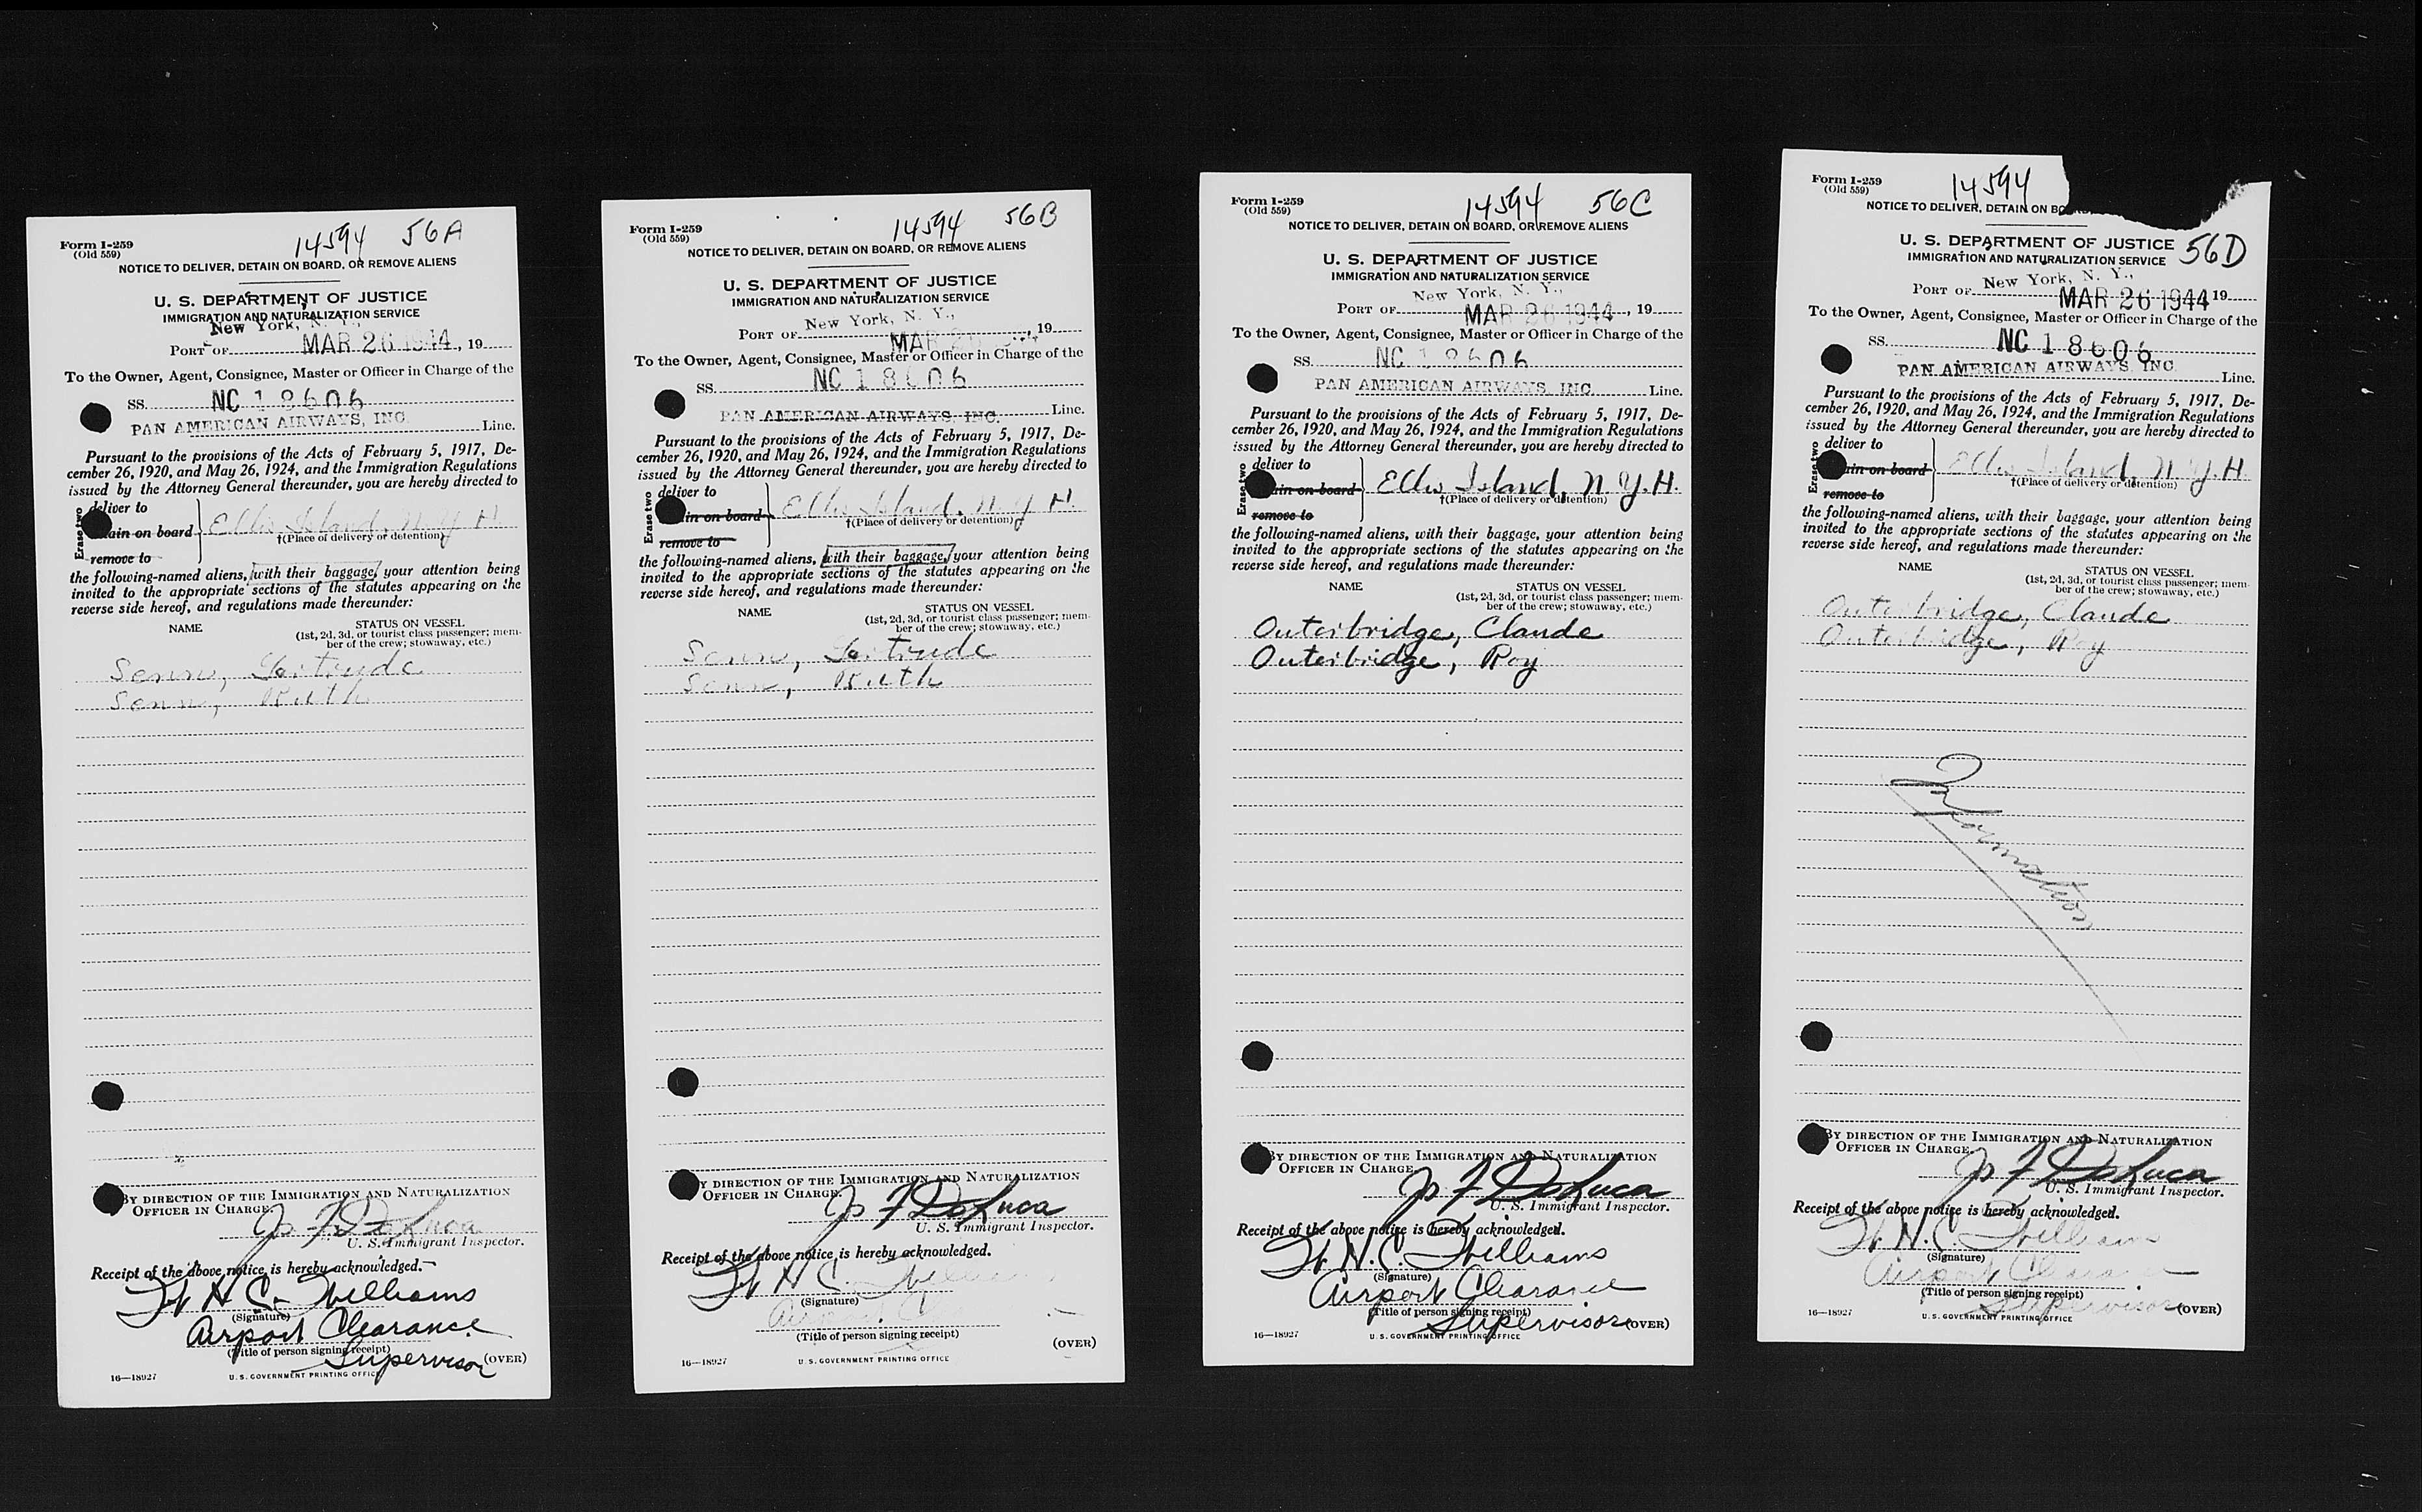 14594 56A
Form I-259
(Old 559)
NOTICE TO DELIVER, DETAIN ON BOARD, OR REMOVE ALIENS
U. S. DEPARTMENT OF JUSTICE
IMMIGRATION AND NATURALIZATION SERVICE
New York, N. Y.,
PORT OF MAR 26 1944, 19
To the Owner, Agent, Consignee, Master or Officer in Charge of the
SS. NC 18606
PAN AMERICAN AIRWAYS, INC. Line.
Pursuant to the provisions of the Acts of February 5, 1917, De-
cember 26, 1920, and May 26, 1924, and the Immigration Regulations
issued by the Attorney General thereunder, you are hereby directed to
Erase two
deliver to
tain on board Ellis Island, N.Y.H
†(Place of delivery or detention)
remove to
the following-named aliens, with their baggage, your attention being
invited to the appropriate sections of the statutes appearing on the
reverse side hereof, and regulations made thereunder:
NAME STATUS ON VESSEL
(1st, 2d, 3d, or tourist class passenger; mem-
ber of the crew; stowaway, etc.)
Senn, Gertrude
Senn, Ruth
BY DIRECTION OF THE IMMIGRATION AND NATURALIZATION
OFFICER IN CHARGE.
Jos F DeLuca
U. S. Immigrant Inspector.
Receipt of the above notice is hereby acknowledged.
H. C. Williams
(Signature)
Airport Clearance
(Title of person signing receipt)
Supervisor (OVER)
16—18927 U. S. GOVERNMENT PRINTING OFFICE
14594 56B
Form I-259
(Old 559)
NOTICE TO DELIVER, DETAIN ON BOARD, OR REMOVE ALIENS
U. S. DEPARTMENT OF JUSTICE
IMMIGRATION AND NATURALIZATION SERVICE
New York, N. Y.,
PORT OF MAR 26, 19
To the Owner, Agent, Consignee, Master or Officer in Charge of the
SS. NC 18606
PAN AMERICAN AIRWAYS, INC. Line.
Pursuant to the provisions of the Acts of February 5, 1917, De-
cember 26, 1920, and May 26, 1924, and the Immigration Regulations
issued by the Attorney General thereunder, you are hereby directed to
Erase two
deliver to
in on board Ellis Island, N.Y.H.
†(Place of delivery or detention)
remove to
the following-named aliens, with their baggage, your attention being
invited to the appropriate sections of the statutes appearing on the
reverse side hereof, and regulations made thereunder:
NAME STATUS ON VESSEL
(1st, 2d, 3d, or tourist class passenger; mem-
ber of the crew; stowaway, etc.)
Senn, Gertrude
Senn, Ruth
Y DIRECTION OF THE IMMIGRATION AND NATURALIZATION
OFFICER IN CHARGE.
Jos F DeLuca
U. S. Immigrant Inspector.
Receipt of the above notice is hereby acknowledged.
H. C. Williams
(Signature)
Airport C
(Title of person signing receipt)
(OVER)
16—18927 U. S. GOVERNMENT PRINTING OFFICE
14594 56C
Form I-259
(Old 559)
NOTICE TO DELIVER, DETAIN ON BOARD, OR REMOVE ALIENS
U. S. DEPARTMENT OF JUSTICE
IMMIGRATION AND NATURALIZATION SERVICE
New York, N. Y.,
PORT OF MAR 26 1944, 19
To the Owner, Agent, Consignee, Master or Officer in Charge of the
SS. NC 18606
PAN AMERICAN AIRWAYS, INC. Line.
Pursuant to the provisions of the Acts of February 5, 1917, De-
cember 26, 1920, and May 26, 1924, and the Immigration Regulations
issued by the Attorney General thereunder, you are hereby directed to
Erase two
deliver to
ain on board Ellis Island, N.Y.H.
†(Place of delivery or detention)
remove to
the following-named aliens, with their baggage, your attention being
invited to the appropriate sections of the statutes appearing on the
reverse side hereof, and regulations made thereunder:
NAME STATUS ON VESSEL
(1st, 2d, 3d, or tourist class passenger; mem-
ber of the crew; stowaway, etc.)
Outerbridge, Claude
Outerbridge, Roy
BY DIRECTION OF THE IMMIGRATION AND NATURALIZATION
OFFICER IN CHARGE.
Jos F DeLuca
U. S. Immigrant Inspector.
Receipt of the above notice is hereby acknowledged.
H. C. Williams
(Signature)
Airport Clearance
(Title of person signing receipt)
Supervisor (OVER)
16—18927 U. S. GOVERNMENT PRINTING OFFICE
14594
Form I-259
(Old 559)
NOTICE TO DELIVER, DETAIN ON BO
U. S. DEPARTMENT OF JUSTICE 56D
IMMIGRATION AND NATURALIZATION SERVICE
New York, N. Y.,
PORT OF MAR 26 1944 19
To the Owner, Agent, Consignee, Master or Officer in Charge of the
SS. NC 18606
PAN AMERICAN AIRWAYS, INC. Line.
Pursuant to the provisions of the Acts of February 5, 1917, De-
cember 26, 1920, and May 26, 1924, and the Immigration Regulations
issued by the Attorney General thereunder, you are hereby directed to
Erase two
deliver to
ain on board Ellis Island, N.Y.H.
†(Place of delivery or detention)
remove to
the following-named aliens, with their baggage, your attention being
invited to the appropriate sections of the statutes appearing on the
reverse side hereof, and regulations made thereunder:
NAME STATUS ON VESSEL
(1st, 2d, 3d, or tourist class passenger; mem-
ber of the crew; stowaway, etc.)
Outerbridge, Claude
Outerbridge, Roy
BY DIRECTION OF THE IMMIGRATION AND NATURALIZATION
OFFICER IN CHARGE.
Jos F DeLuca
U. S. Immigrant Inspector.
Receipt of the above notice is hereby acknowledged.
H. C. Williams
(Signature)
Airport Clearance
(Title of person signing receipt)
Supervisor (OVER)
16—18927 U. S. GOVERNMENT PRINTING OFFICE